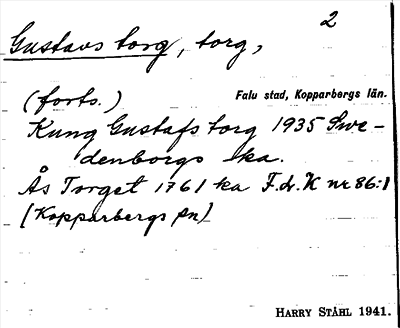 2
Gustavs torg, torg,
(forts.) Falu stad, Kopparbergs län.
Kung Gustafs torg 1935 Swe-
denborgs ka.
Ås Torget 1761 ka F.d. K nr 86:1
(Kopparbergs sn)
HARRY STÅHL 1941.